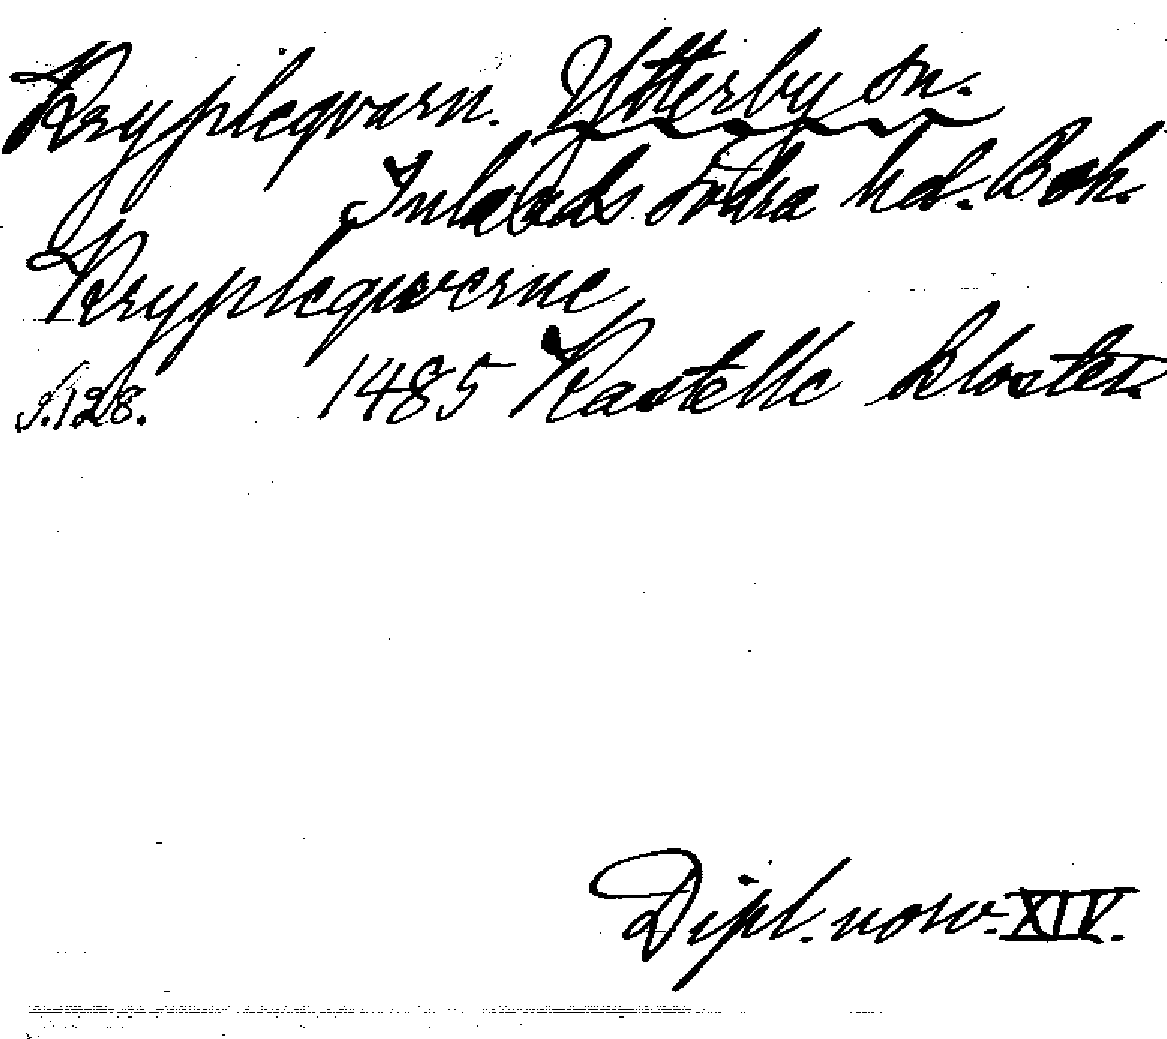 Krypleqvarn. Ytterby sn.
Inlands Södra hd. Boh.
Kryplequerne
S. 128. 1485 Kastelle kloster.
Dipl. norv. XIV.